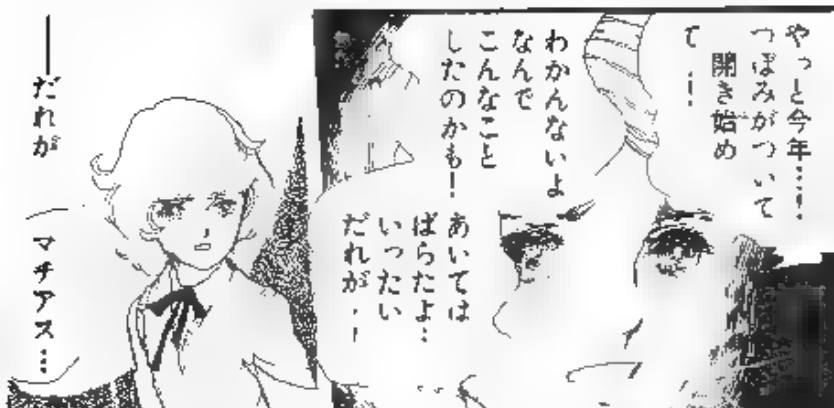 やっと今年…！
つぼみがついて
開き始め
て！
わかんないよ
なんで
こんなこと
したのかも！
あいては
ばらだよ…
いったい
だれが！
──だれが
マチアス…